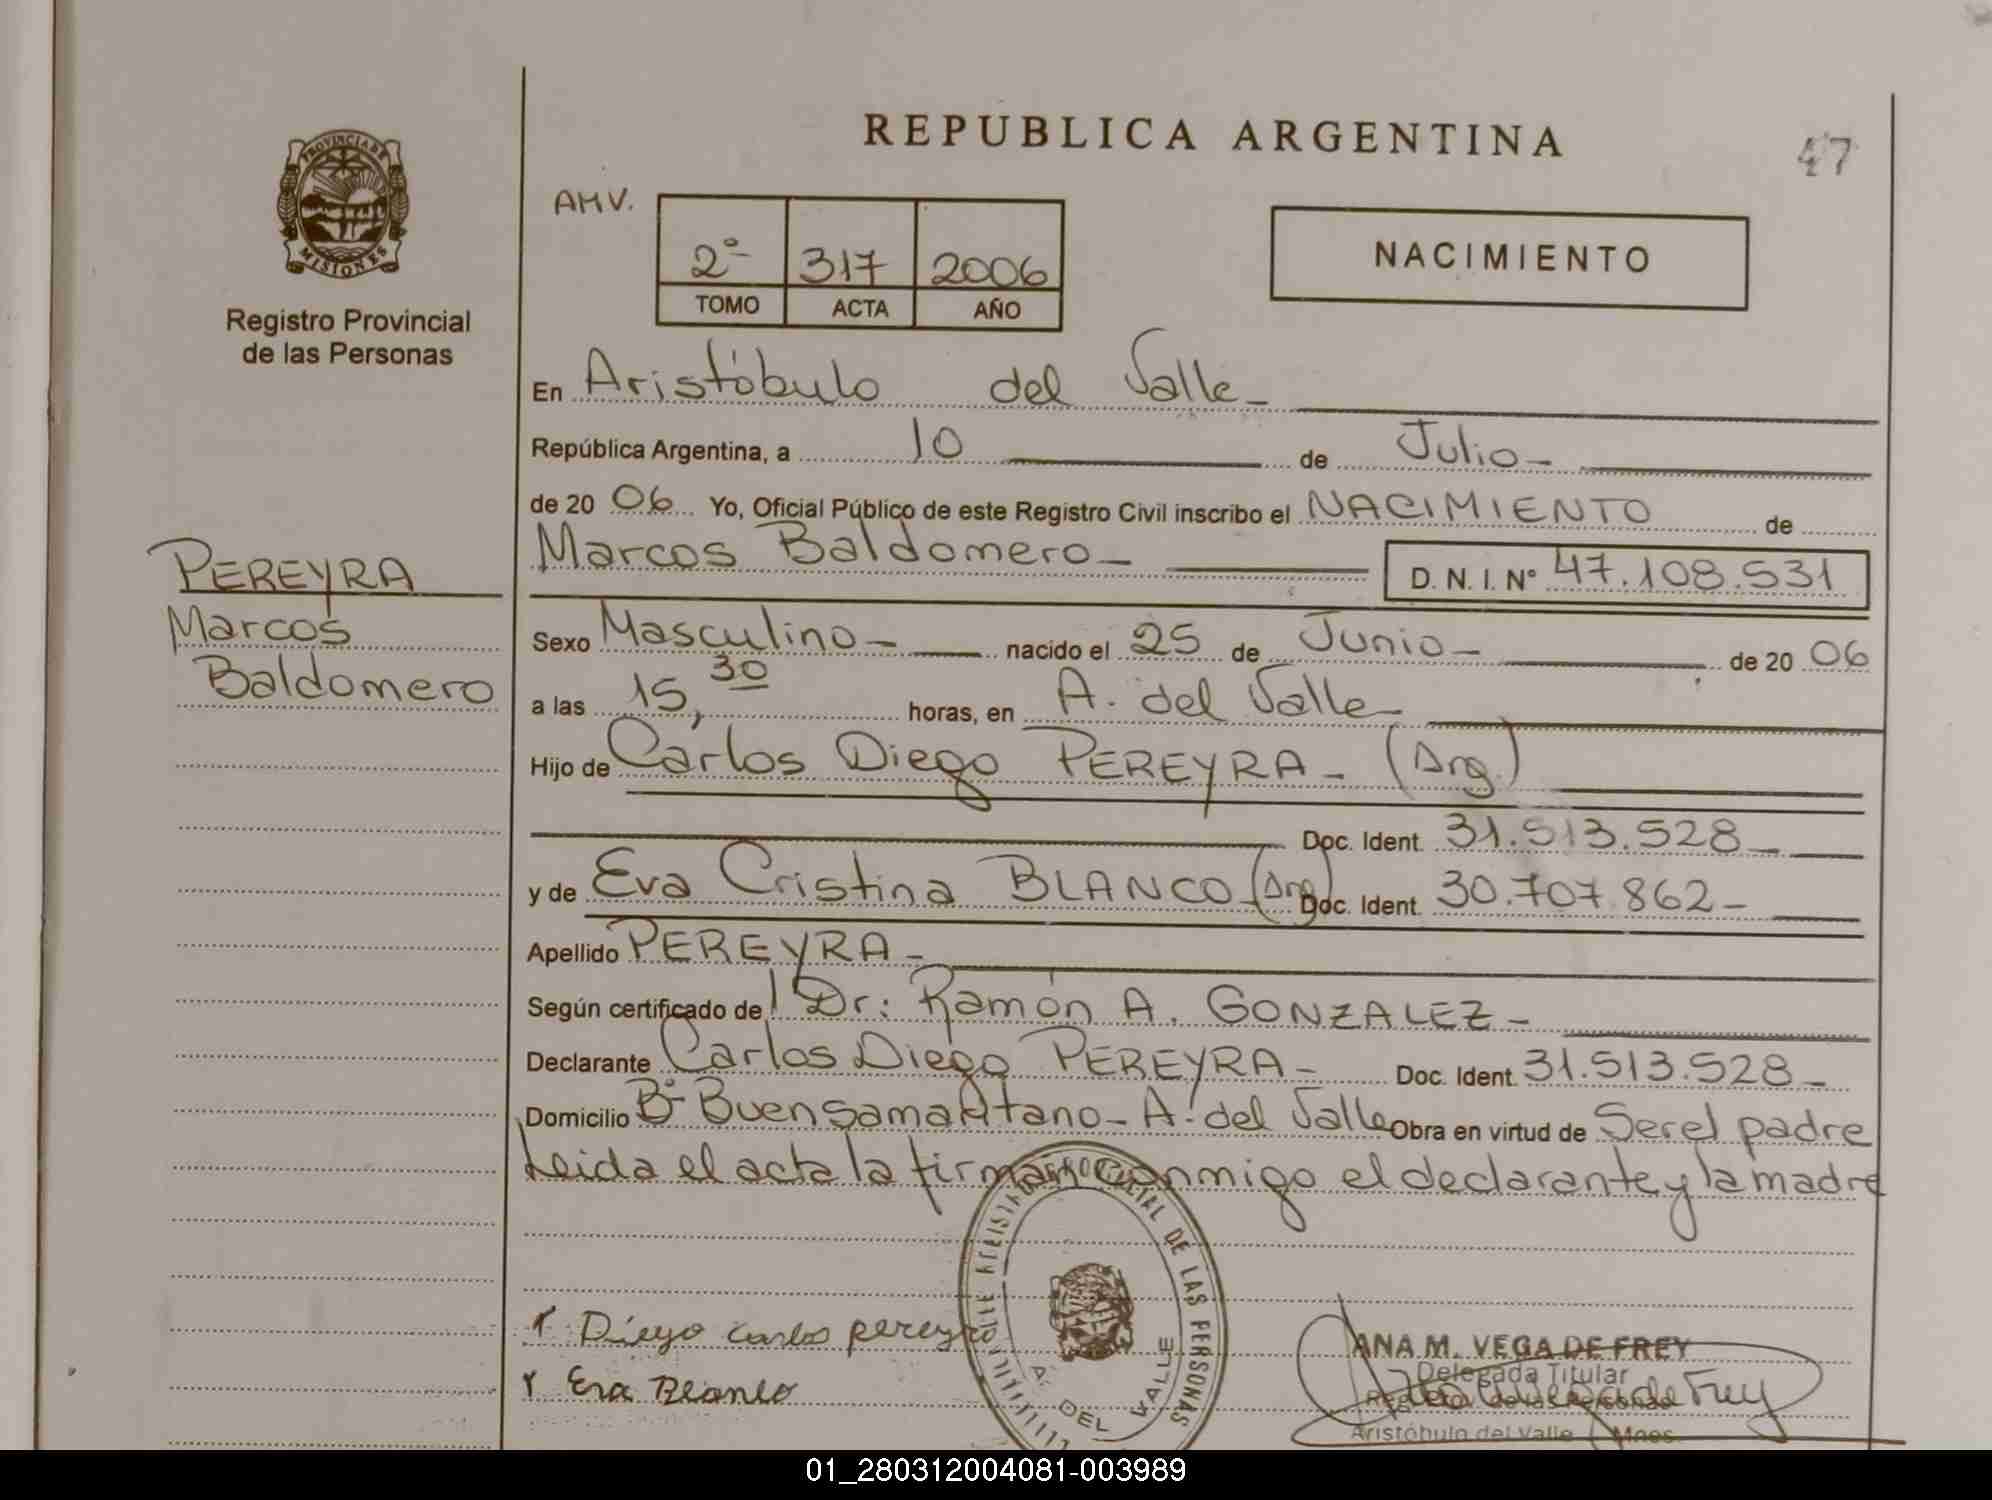 REPUBLICA ARGENTINA
47
PROVINCIA DE
MISIONES
Registro Provincial
de las Personas
AMV.
2º 317 2006
TOMO ACTA AÑO
NACIMIENTO
En Aristóbulo del Valle
República Argentina, a 10 de Julio
de 20 06 Yo, Oficial Público de este Registro Civil inscribo el NACIMIENTO de
Marcos Baldomero D. N. I. Nº 47.108.531
PEREYRA
Marcos
Baldomero
Sexo Masculino nacido el 25 de Junio de 20 06
a las 15,30 horas, en A. del Valle
Hijo de Carlos Diego PEREYRA (Arg.)
Doc. Ident. 31.513.528
y de Eva Cristina BLANCO (Arg) Doc. Ident. 30.707.862
Apellido PEREYRA
Según certificado de Dr: Ramón A. GONZALEZ
Declarante Carlos Diego PEREYRA Doc. Ident. 31.513.528
Domicilio Bº Buen Samaritano - A. del Valle Obra en virtud de Ser el padre
Leida el acta la firman conmigo el declarante y la madre
Diego carlos pereyra
Eva Blanco
DE LAS PERSONAS
A. DEL VALLE
ANA M. VEGA DE FREY
Delegada Titular
Aristóbulo del Valle Mnes.
01_280312004081-003989